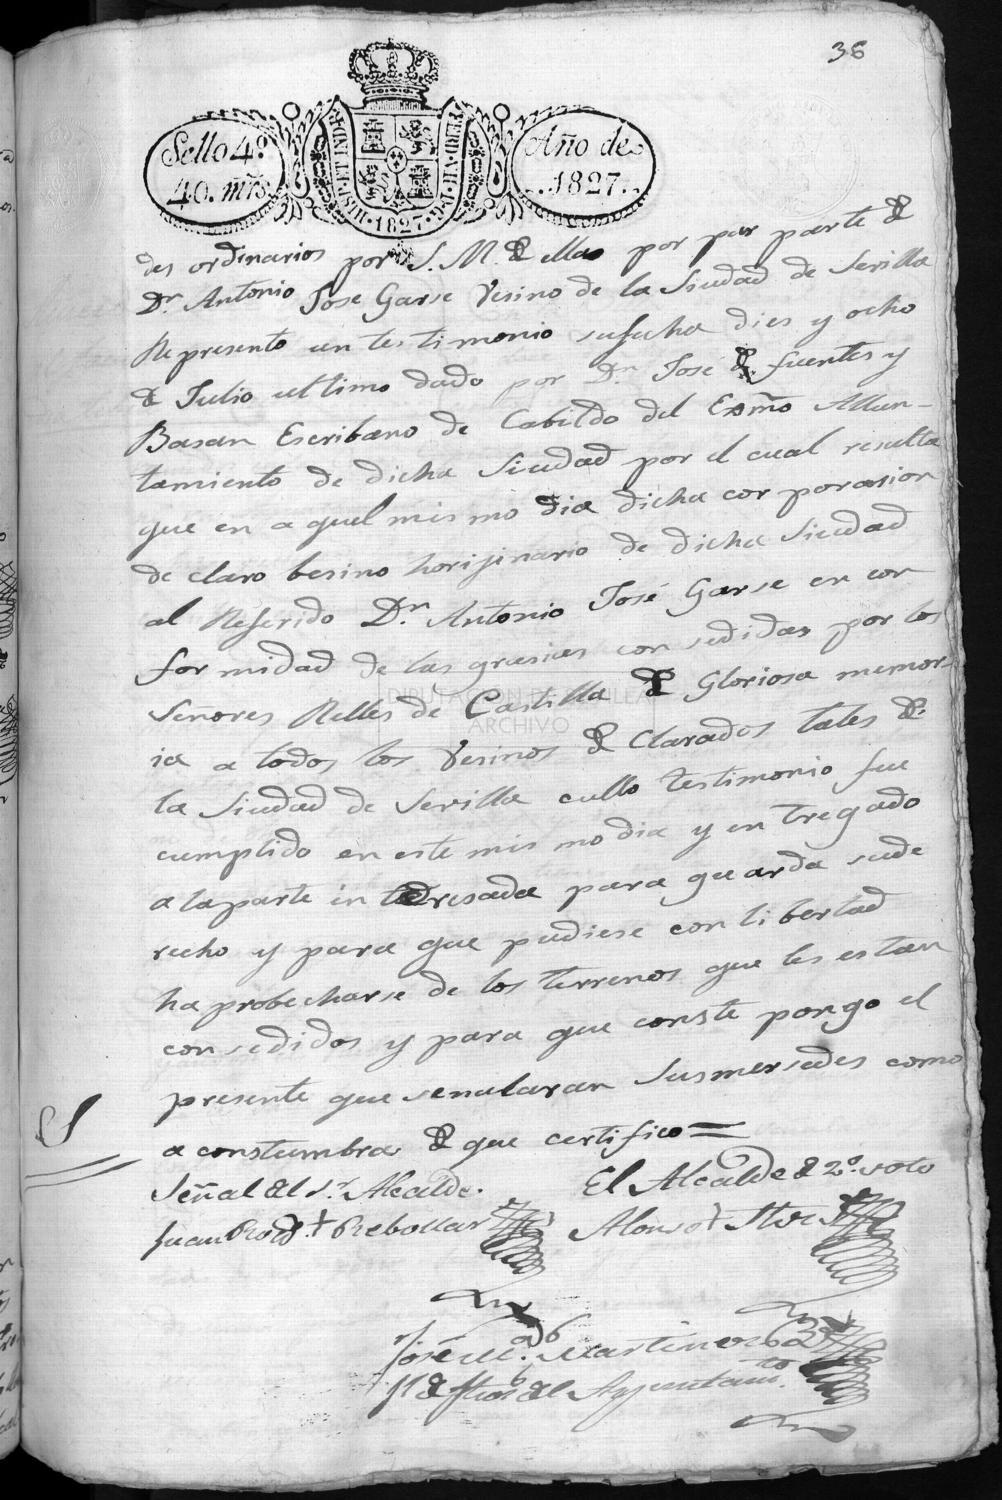 36
Sello 4º.
40. mrs.
HISP. ET IND. R.
FERD. VII. D. G.
1827
Año de
1827.
des ordinarios por S. M. de ellas por por parte de
Dn. Antonio Jose Garse Vesino de la Siudad de Sevilla
Represento un testimonio sufecha dies y ocho
de Julio ultimo dado por Dn. José de fuentes y
Basan Escribano de Cabildo del Exmo Allun-
tamiento de dicha Siudad por el cual resulta
que en a quel mis mo dia dicha cor porasion
de claro besino horijinario de dicha Siudad
al Referido Dn. Antonio José Garse en con
for midad de las grasias con sedidas por los
Señores Relles de Castilla de Gloriosa memor-
ia a todos los Vesinos de Clarados tales de
la Siudad de Sevilla cullo testimonio fue
cumplido en este mis mo dia y en tregado
a la parte in teresada para guarda sude
recho y para que pudiese con libertad
ha probecharse de los terrenos que les estan
con sedidos y para que conste pongo el
presente que senalaran Susmersedes como
a constumbra de que certifico =
Señal del Sr. Alcalde.
El Alcalde de 2º. voto
Juan Rod + Rebollar
Alonso +
José M.ª Martinez
f de fhos del Ayuntamto.
DIPUTACIÓN DE HUELVA
ARCHIVO